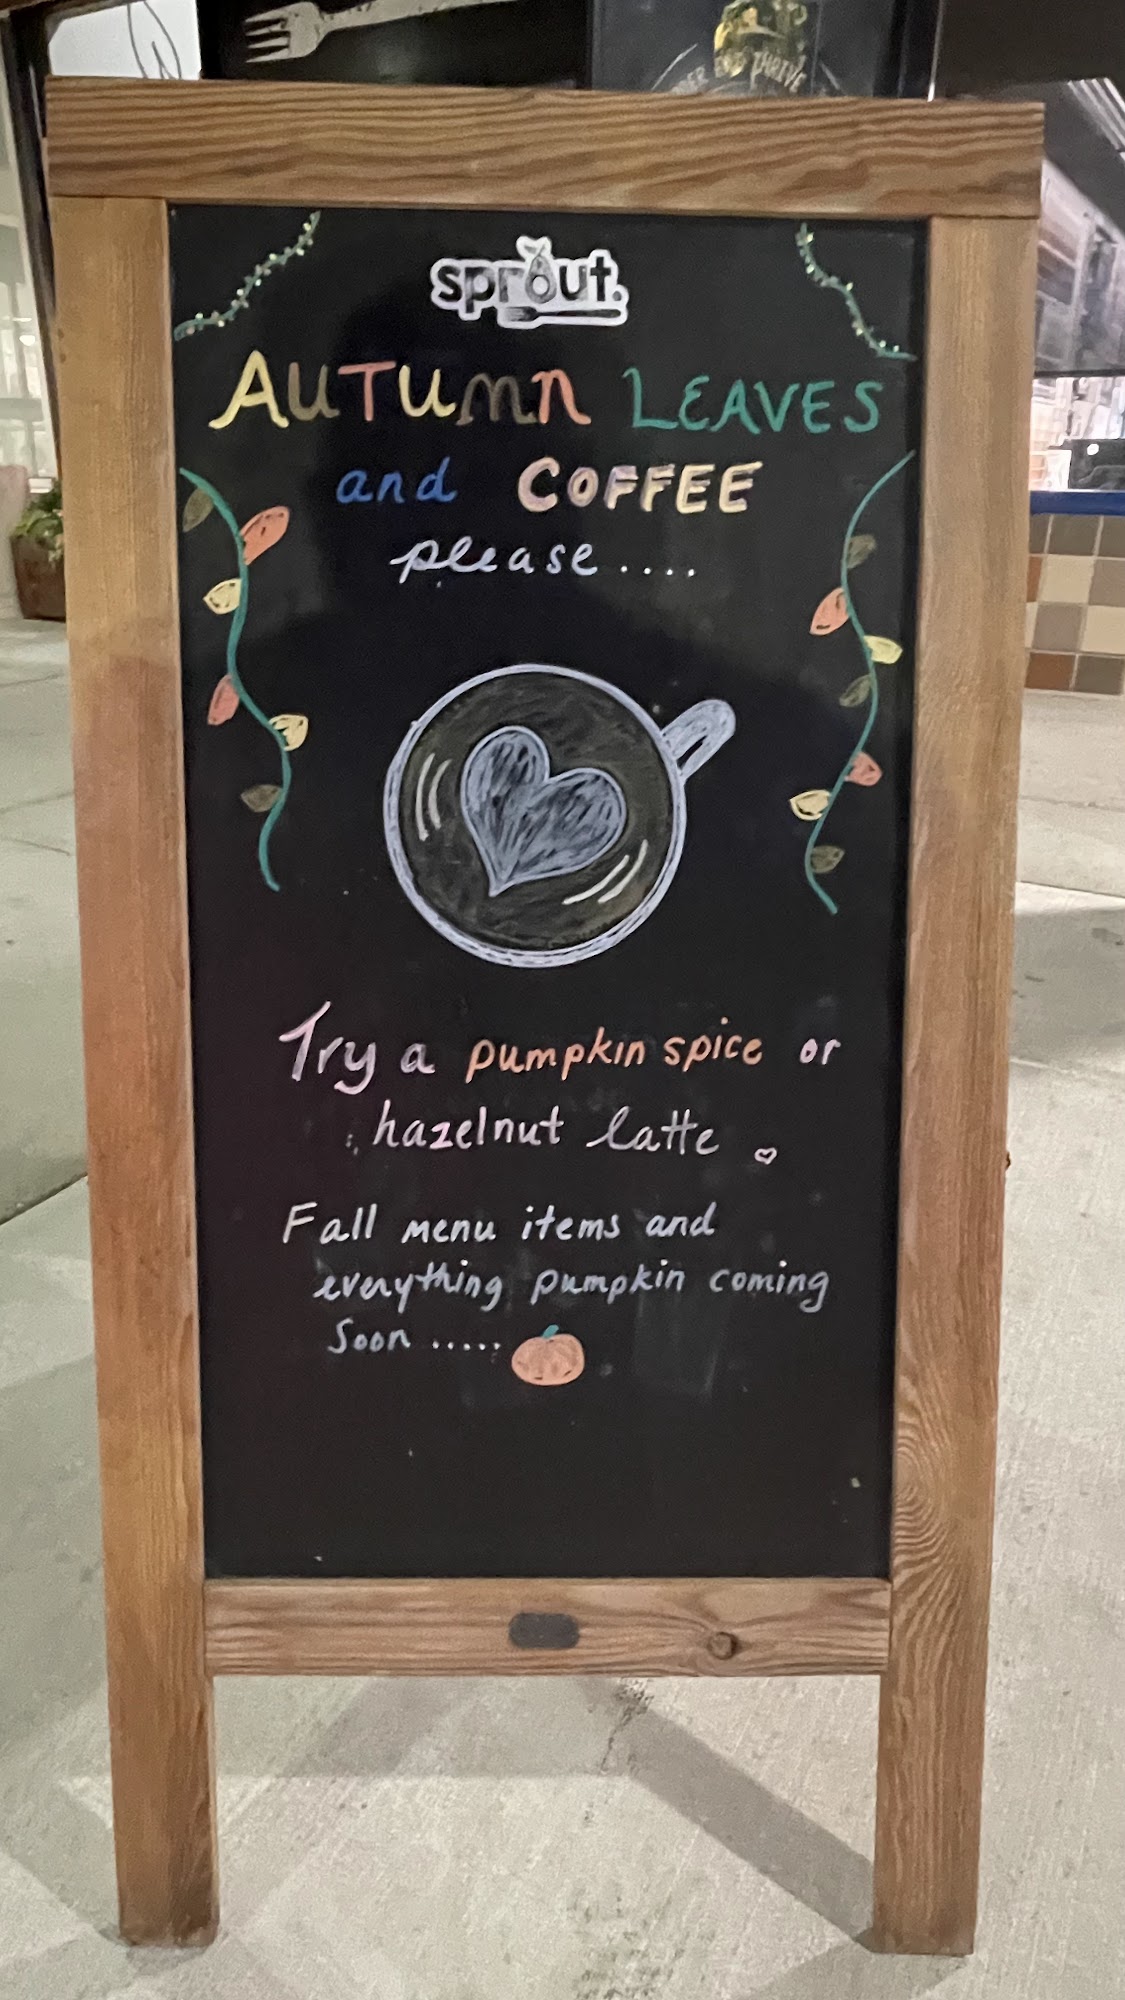 THRIVE
sprout.
AUTUMN LEAVES
and COFFEE
please....
Try a pumpkin spice or
hazelnut latte
Fall menu items and
everything pumpkin coming
soon .....